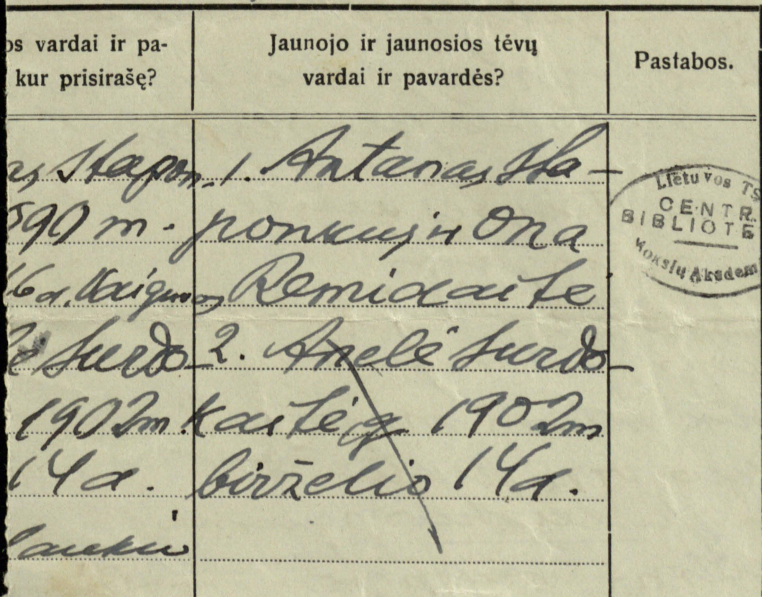 os vardai ir pa-
kur prisirašę?
Jaunojo ir jaunosios tėvų
vardai ir pavardės?
Pastabos.
as Stapon-
890 m.
16 d.
Surdo-
1902 m.
14 d.
laukių
1. Antanas Sta-
ponkus ir Ona
Remidaitė
2. Anelė Surdo-
kaitė g. 1902 m
birželio 14 d.
Lietuvos TS
CENTR.
BIBLIOTE
Mokslų Akadem